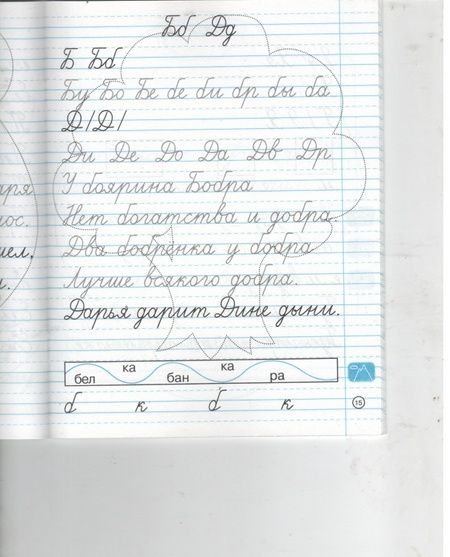 Бб Дд
Б Бб
Бу Бо Бе бе би бр бы ба
Д / Д /
Ди Де До Да Дв Др
У боярина Бобра
Нет богатства и добра.
Два бобрёнка у бобра
Лучше всякого добра.
Дарья дарит Дине дыни.
бел ка бан ка ра
б к б к
15